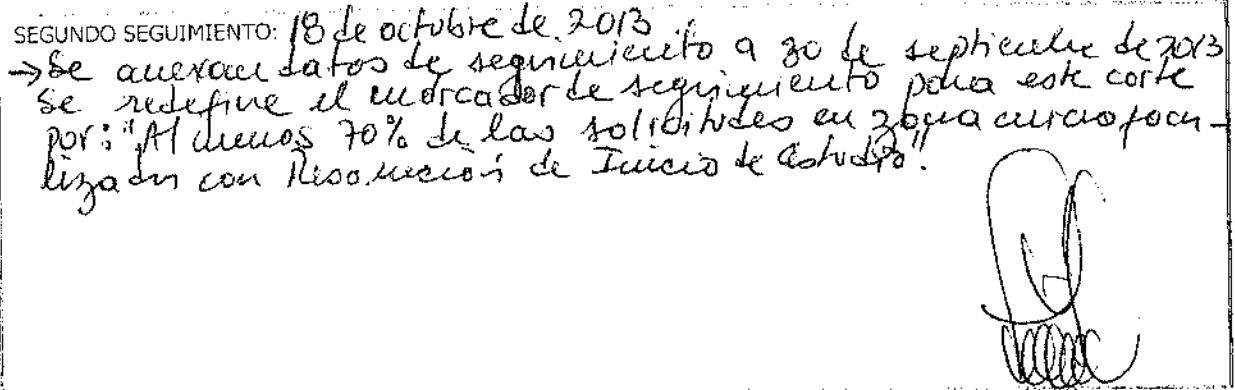 SEGUNDO SEGUIMIENTO: 18 de octubre de 2013.
→ Se anexan datos de seguimiento a 30 de septiembre de 2013
Se redefine el marcador de seguimiento para este corte
por: "Al menos 70% de las solicitudes en zona microfoca-
lizada con Resolución de Inicio de Estudio".